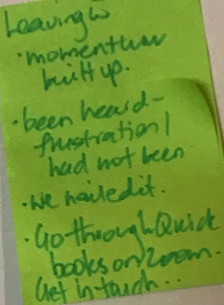 Leaving w
• momentum
built up.
• been heard -
frustration/
had not been
• We nailed it.
• Go through Quick
books on Zoom.
Get in touch..